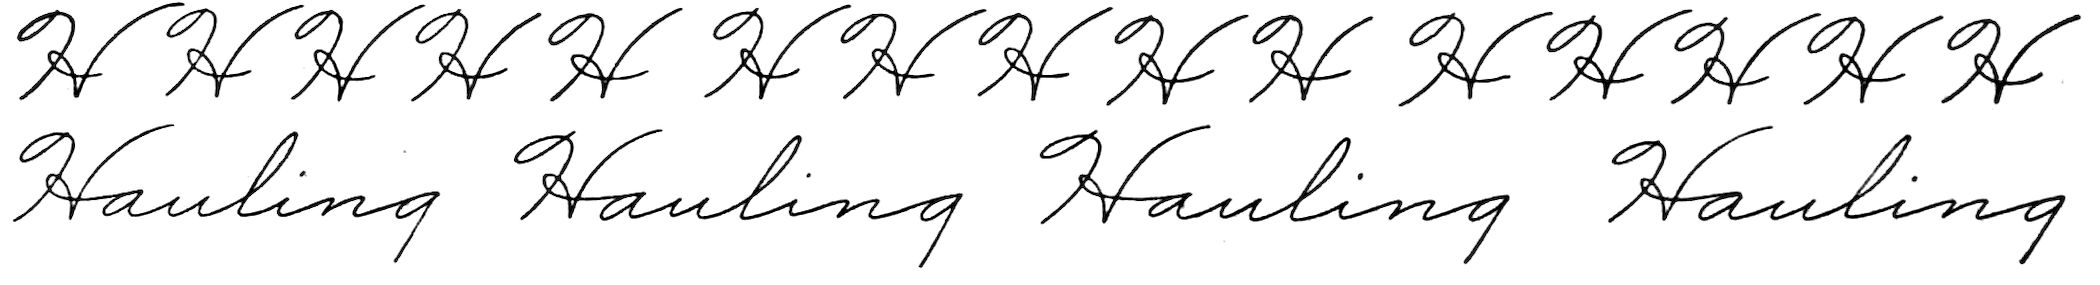 H H H H H H H H H H H H H H H
Hauling Hauling Hauling Hauling